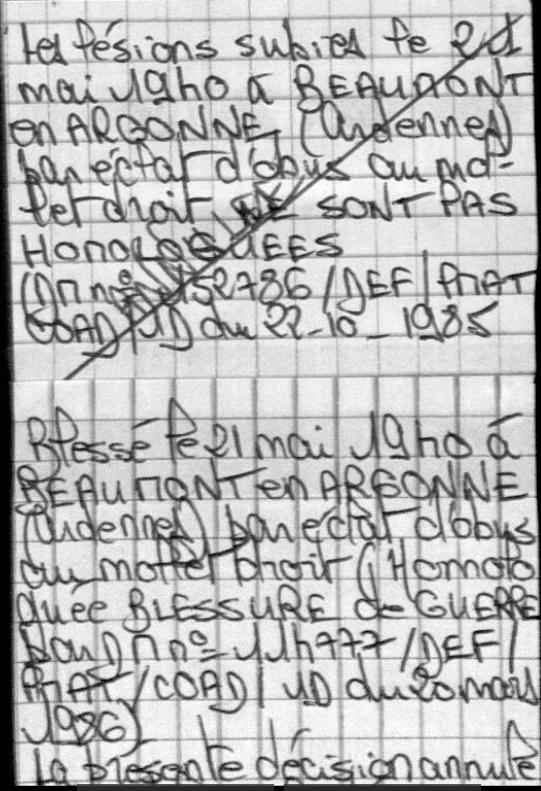 Les lésions subies le 21
mai 1940 à BEAUMONT
en ARGONNE (Ardennes)
par éclat d'obus au mol-
let droit NE SONT PAS
HOMOLOGUEES
(DM n° 152786/DEF/PMAT
COAD/UD du 22-10-1985
Blessé le 21 mai 1940 à
BEAUMONT en ARGONNE
(Ardennes) par éclat d'obus
au mollet droit (Homolo
guée BLESSURE de GUERRE
par DM n° 114777/DEF/
PMAT/COAD/UD du 20 mars
1986)
La présente décision annule